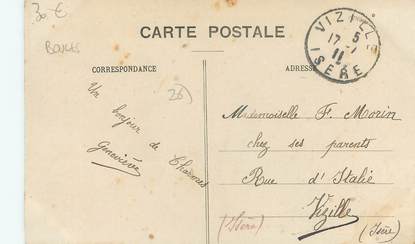 30 €
CARTE POSTALE
VIZILLE
17 - 7
5
11
ISERE
CORRESPONDANCE
ADRESSE
(26)
Un bonjour de Charmes
Geneviève
Mademoiselle F. Morin
chez ses parents
Rue d'Italie
Vizille
(Isère)
(Isère)